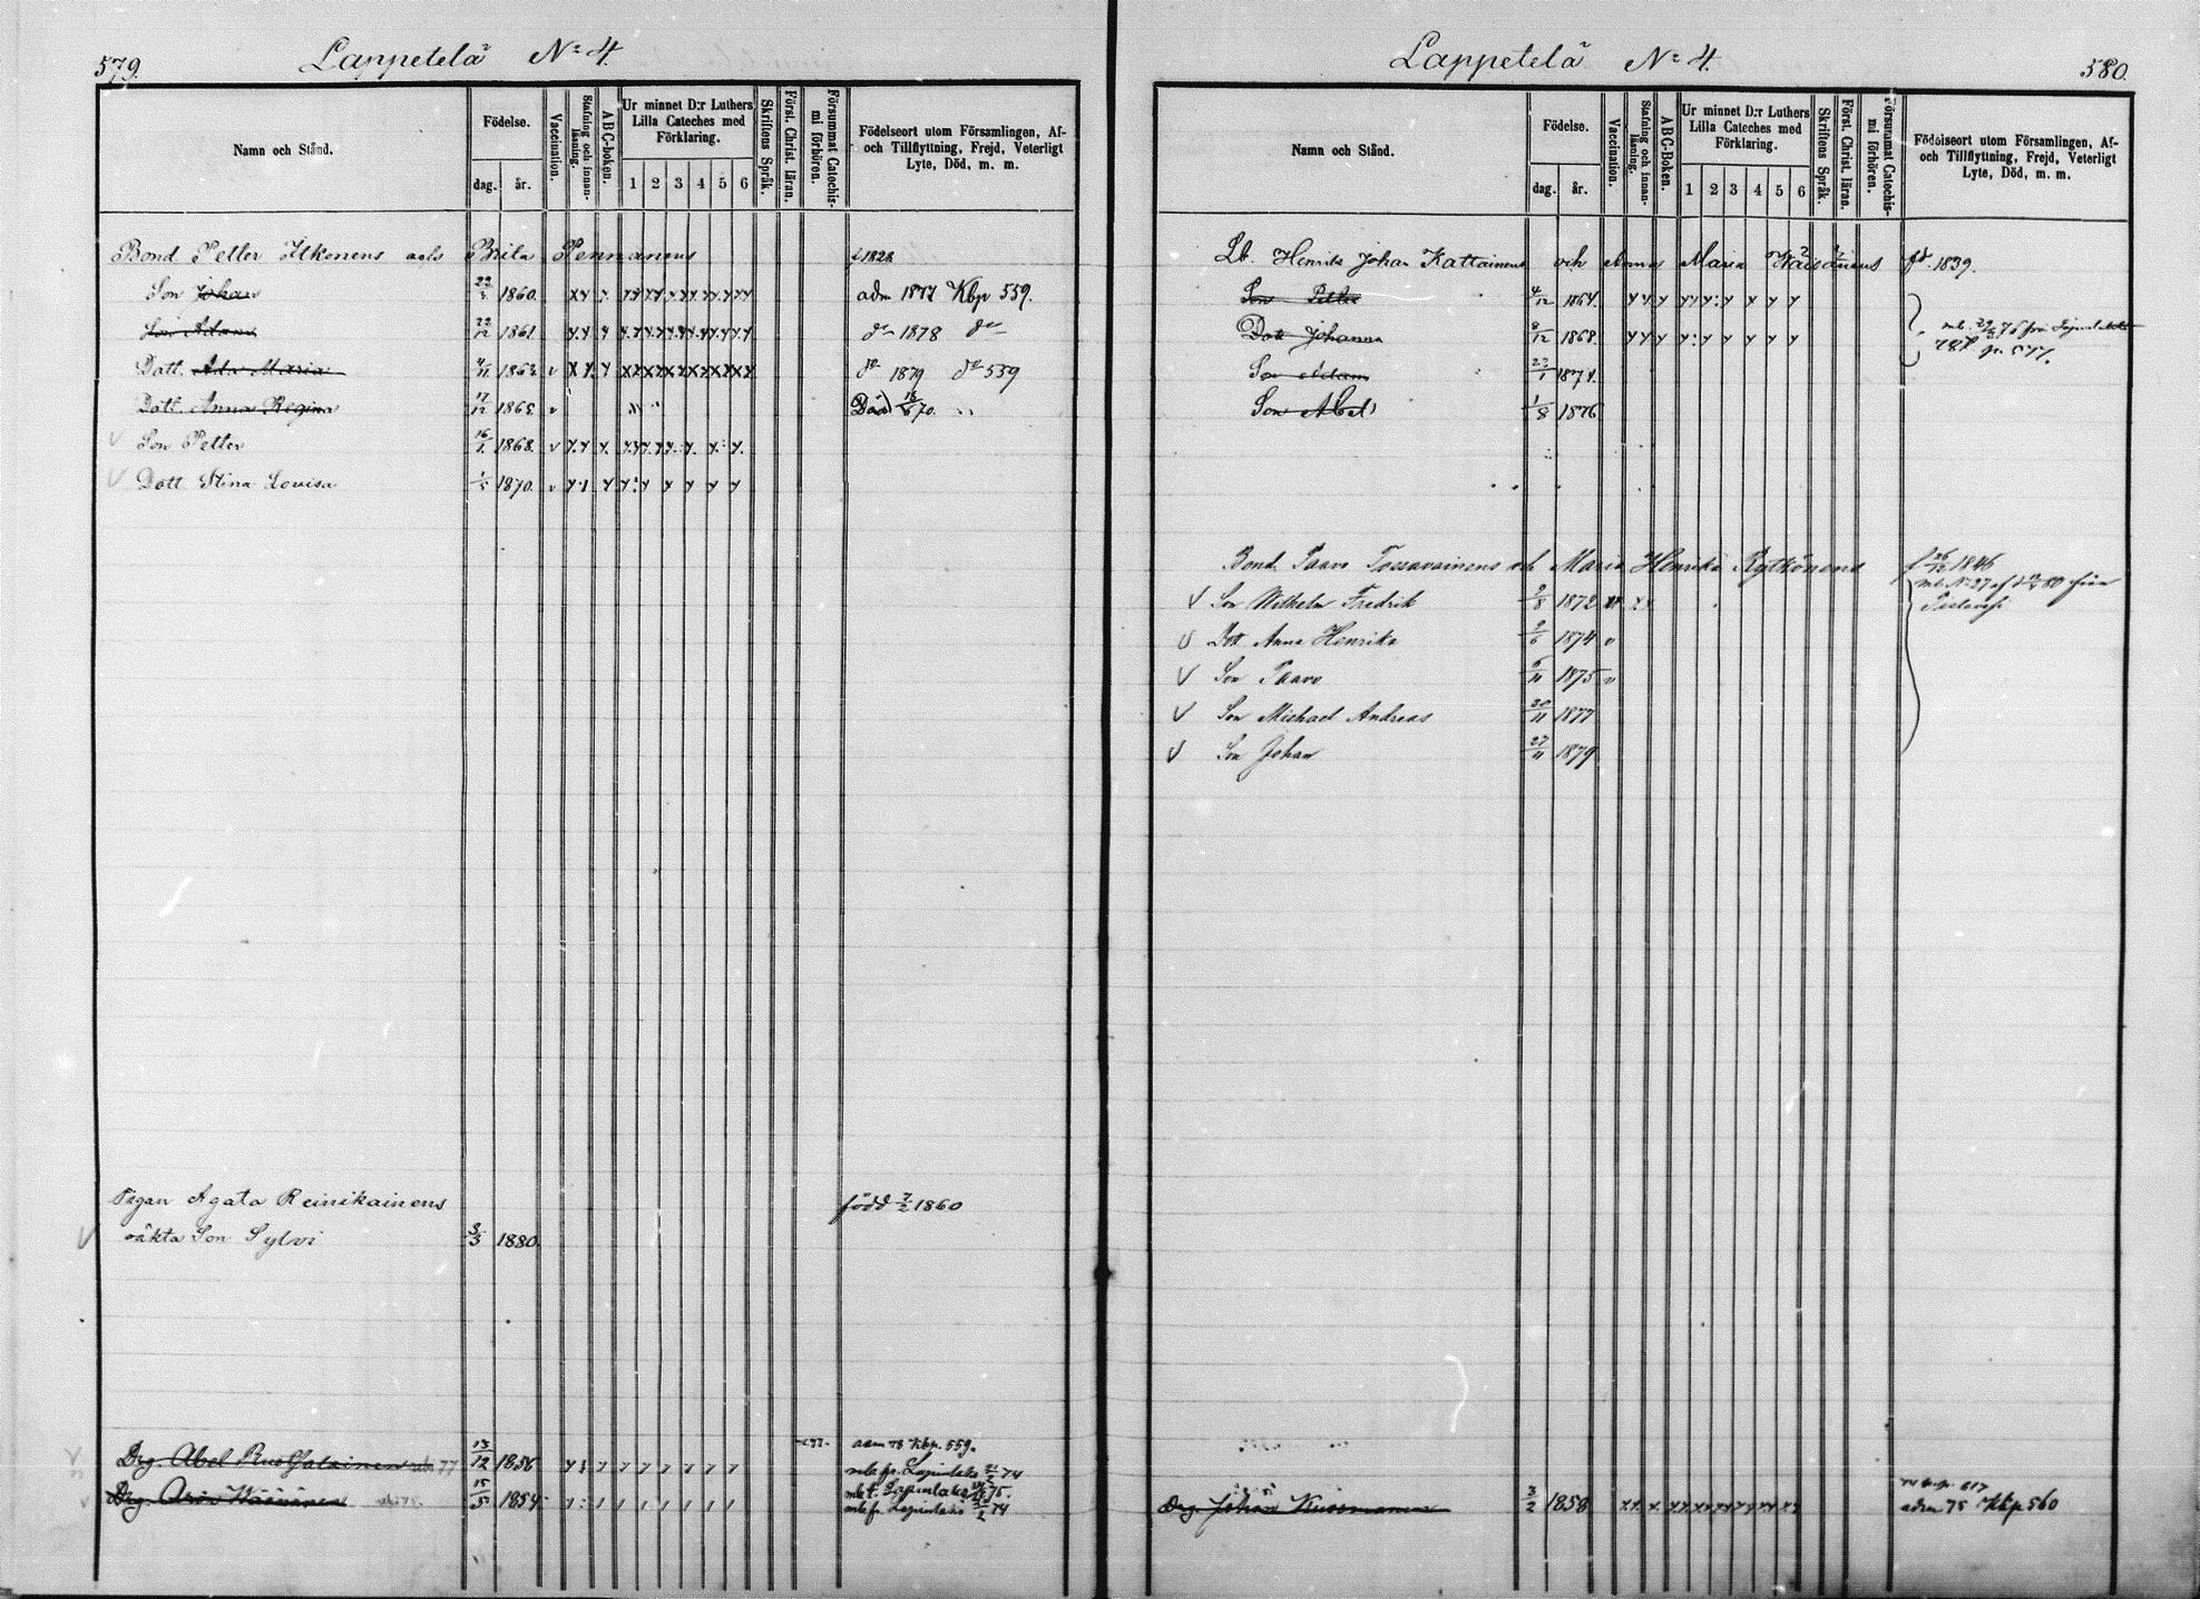 579.
Lappetelä No 4.
Namn och Stånd.
Födelse.
dag.
år.
Vaccination.
Stafning och innan-läsning.
ABC-boken.
Ur minnet D:r Luthers
Lilla Cateches med
Förklaring.
1 2 3 4 5 6
Skriftens Språk.
Först. Christ. läran.
Försummat Catechis-mi förhören.
Födelseort utom Församlingen, Af-
och Tillflyttning, Frejd, Veterligt
Lyte, Död, m. m.
Bond Petter Itkonens och Brita Pennanens f 1828
Son Johan 1860. adm 1877 Kbp 559.
Son Adam 22/12 1861. do 1878 do
Dott. Ada Maria 4/11 1863 v do 1879 do 559
Dott. Anna Regina 17/12 1865 v Död 70.
Son Petter 16/1 1868. v
Dott Stina Lovisa 1/5 1870. v
Pigan Agata Reinikainens född 7/2 1860
oäkta Son Sylvi 3/3 1880.
Drg. Abel 13/12 1856 adm 78 Kbp. 559.
mb. fr. Lapinlaks 74
Drg. 15/5 1854 mb. t. Lapinlaks 75.
mb. fr. Lapinlaks 74
580.
Lappetelä No 4.
Namn och Stånd.
Födelse.
dag.
år.
Vaccination.
Stafning och innan-läsning.
ABC-Boken.
Ur minnet D:r Luthers
Lilla Cateches med
Förklaring.
1 2 3 4 5 6
Skriftens Språk.
Först. Christ. läran.
Försummat Catechis-mi förhören.
Födelseort utom Församlingen, Af-
och Tillflyttning, Frejd, Veterligt
Lyte, Död, m. m.
Lb. Henrik Johan Kattainens och Anna Maria Wäisäinens fd. 1839.
Son Petter 4/12 1864.
Dott Johanna 8/12 1868.
Son Adam 23/1 1874.
Son Abel 1/8 1876
Bond Paavo Tossavainens och Maria Henrika Rytkönens f 26/12 1846
V Son Wilhelm Fredrik 9/8 1872
Dott Anna Henrika 9/6 1874 v
V Son Paavo 6/11 1875 v
V Son Michael Andreas 20/11 1877
V Son Johan 27/11 1879
Drg. Johan 3/2 1858 adm 75 Kbp 560